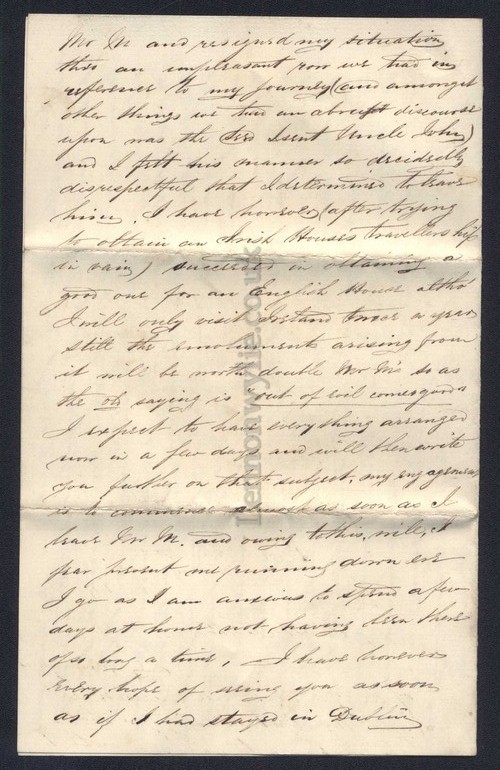 Mr M and resigned my situation
thro an unpleasant row we had in
reference to my journey (and amongst
other things we two an abrupt discourse
upon was the I sent Uncle John)
and I felt his manner so decidedly
disrespectful that I determined to leave
him. I have however (after trying
to obtain an Irish Houses Travellership
in vain) succeeded in obtaining a
good one for an English House altho'
I will only visit Ireland twice a year
still the emoluments arising from
it will be worth double Mr M's so as
the old saying is "out of evil comes good"
I expect to have everything arranged
now in a few days and will then write
you further on that subject, my engagement
is to commence as soon as I
leave Mr M. and owing to this, will, I
fear prevent me running down ere
I go as I am anxious to spend a few
days at home not having been there
of so long a time, I have however
every hope of seeing you as soon
as if I had stayed in Dublin
Lennonwylie.co.uk